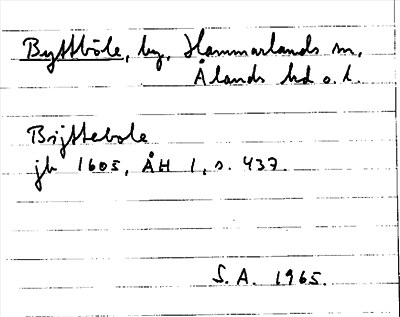 Byttböle, by, Hammarlands sn,
Ålands hd o. l.
Bijttebole
jb 1605, ÅH 1, s. 437.
S. A. 1965.